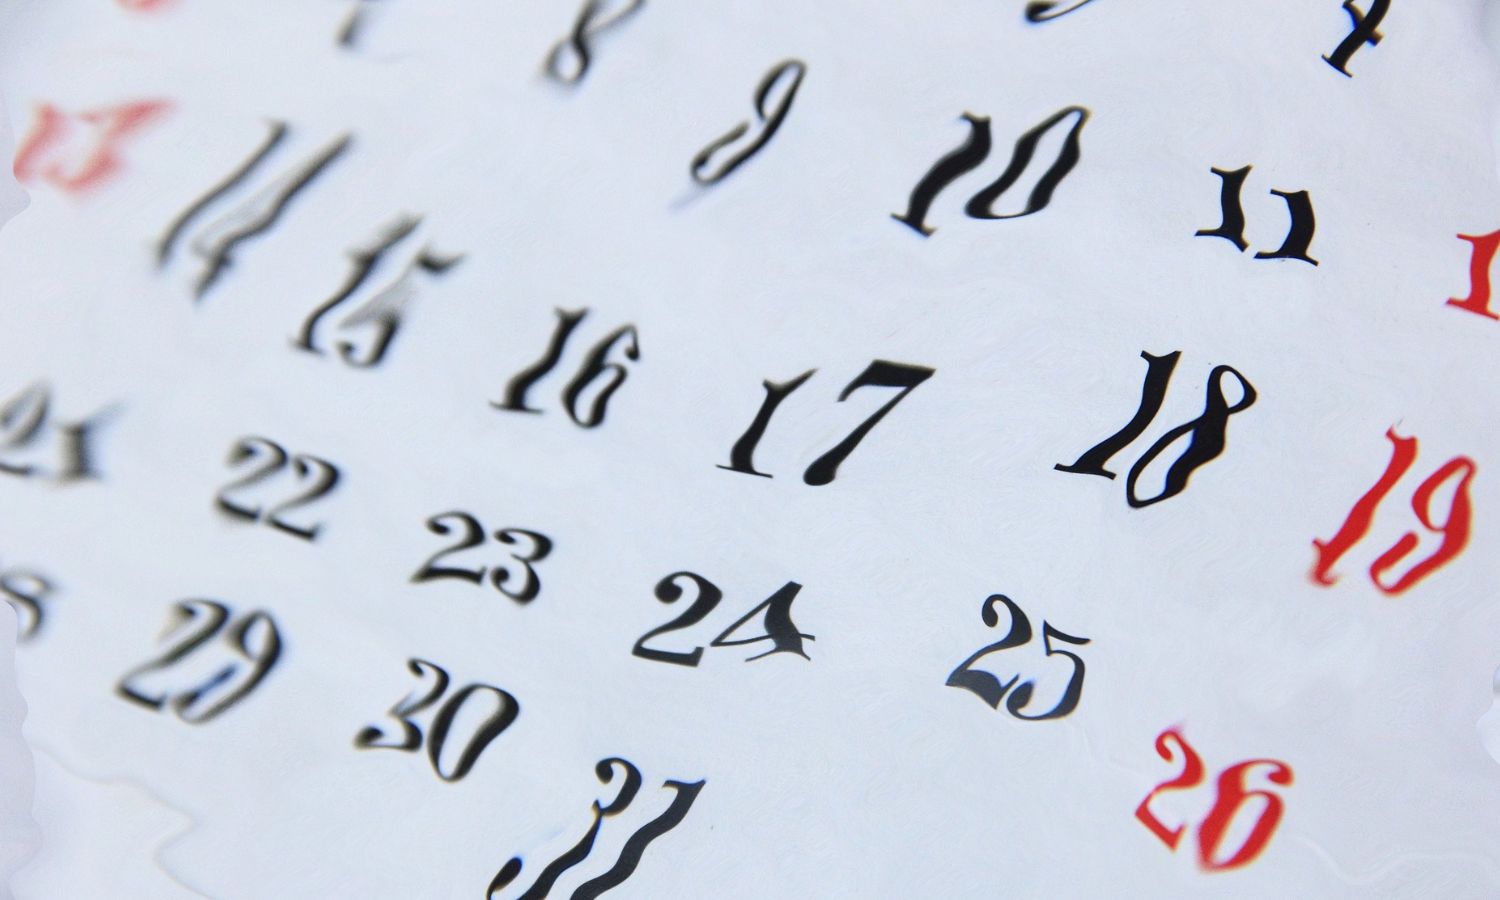 4
8 9 10 11 1
13 14 15 16 17 18 19
21 22 23 24 25 26
8 29 30 31